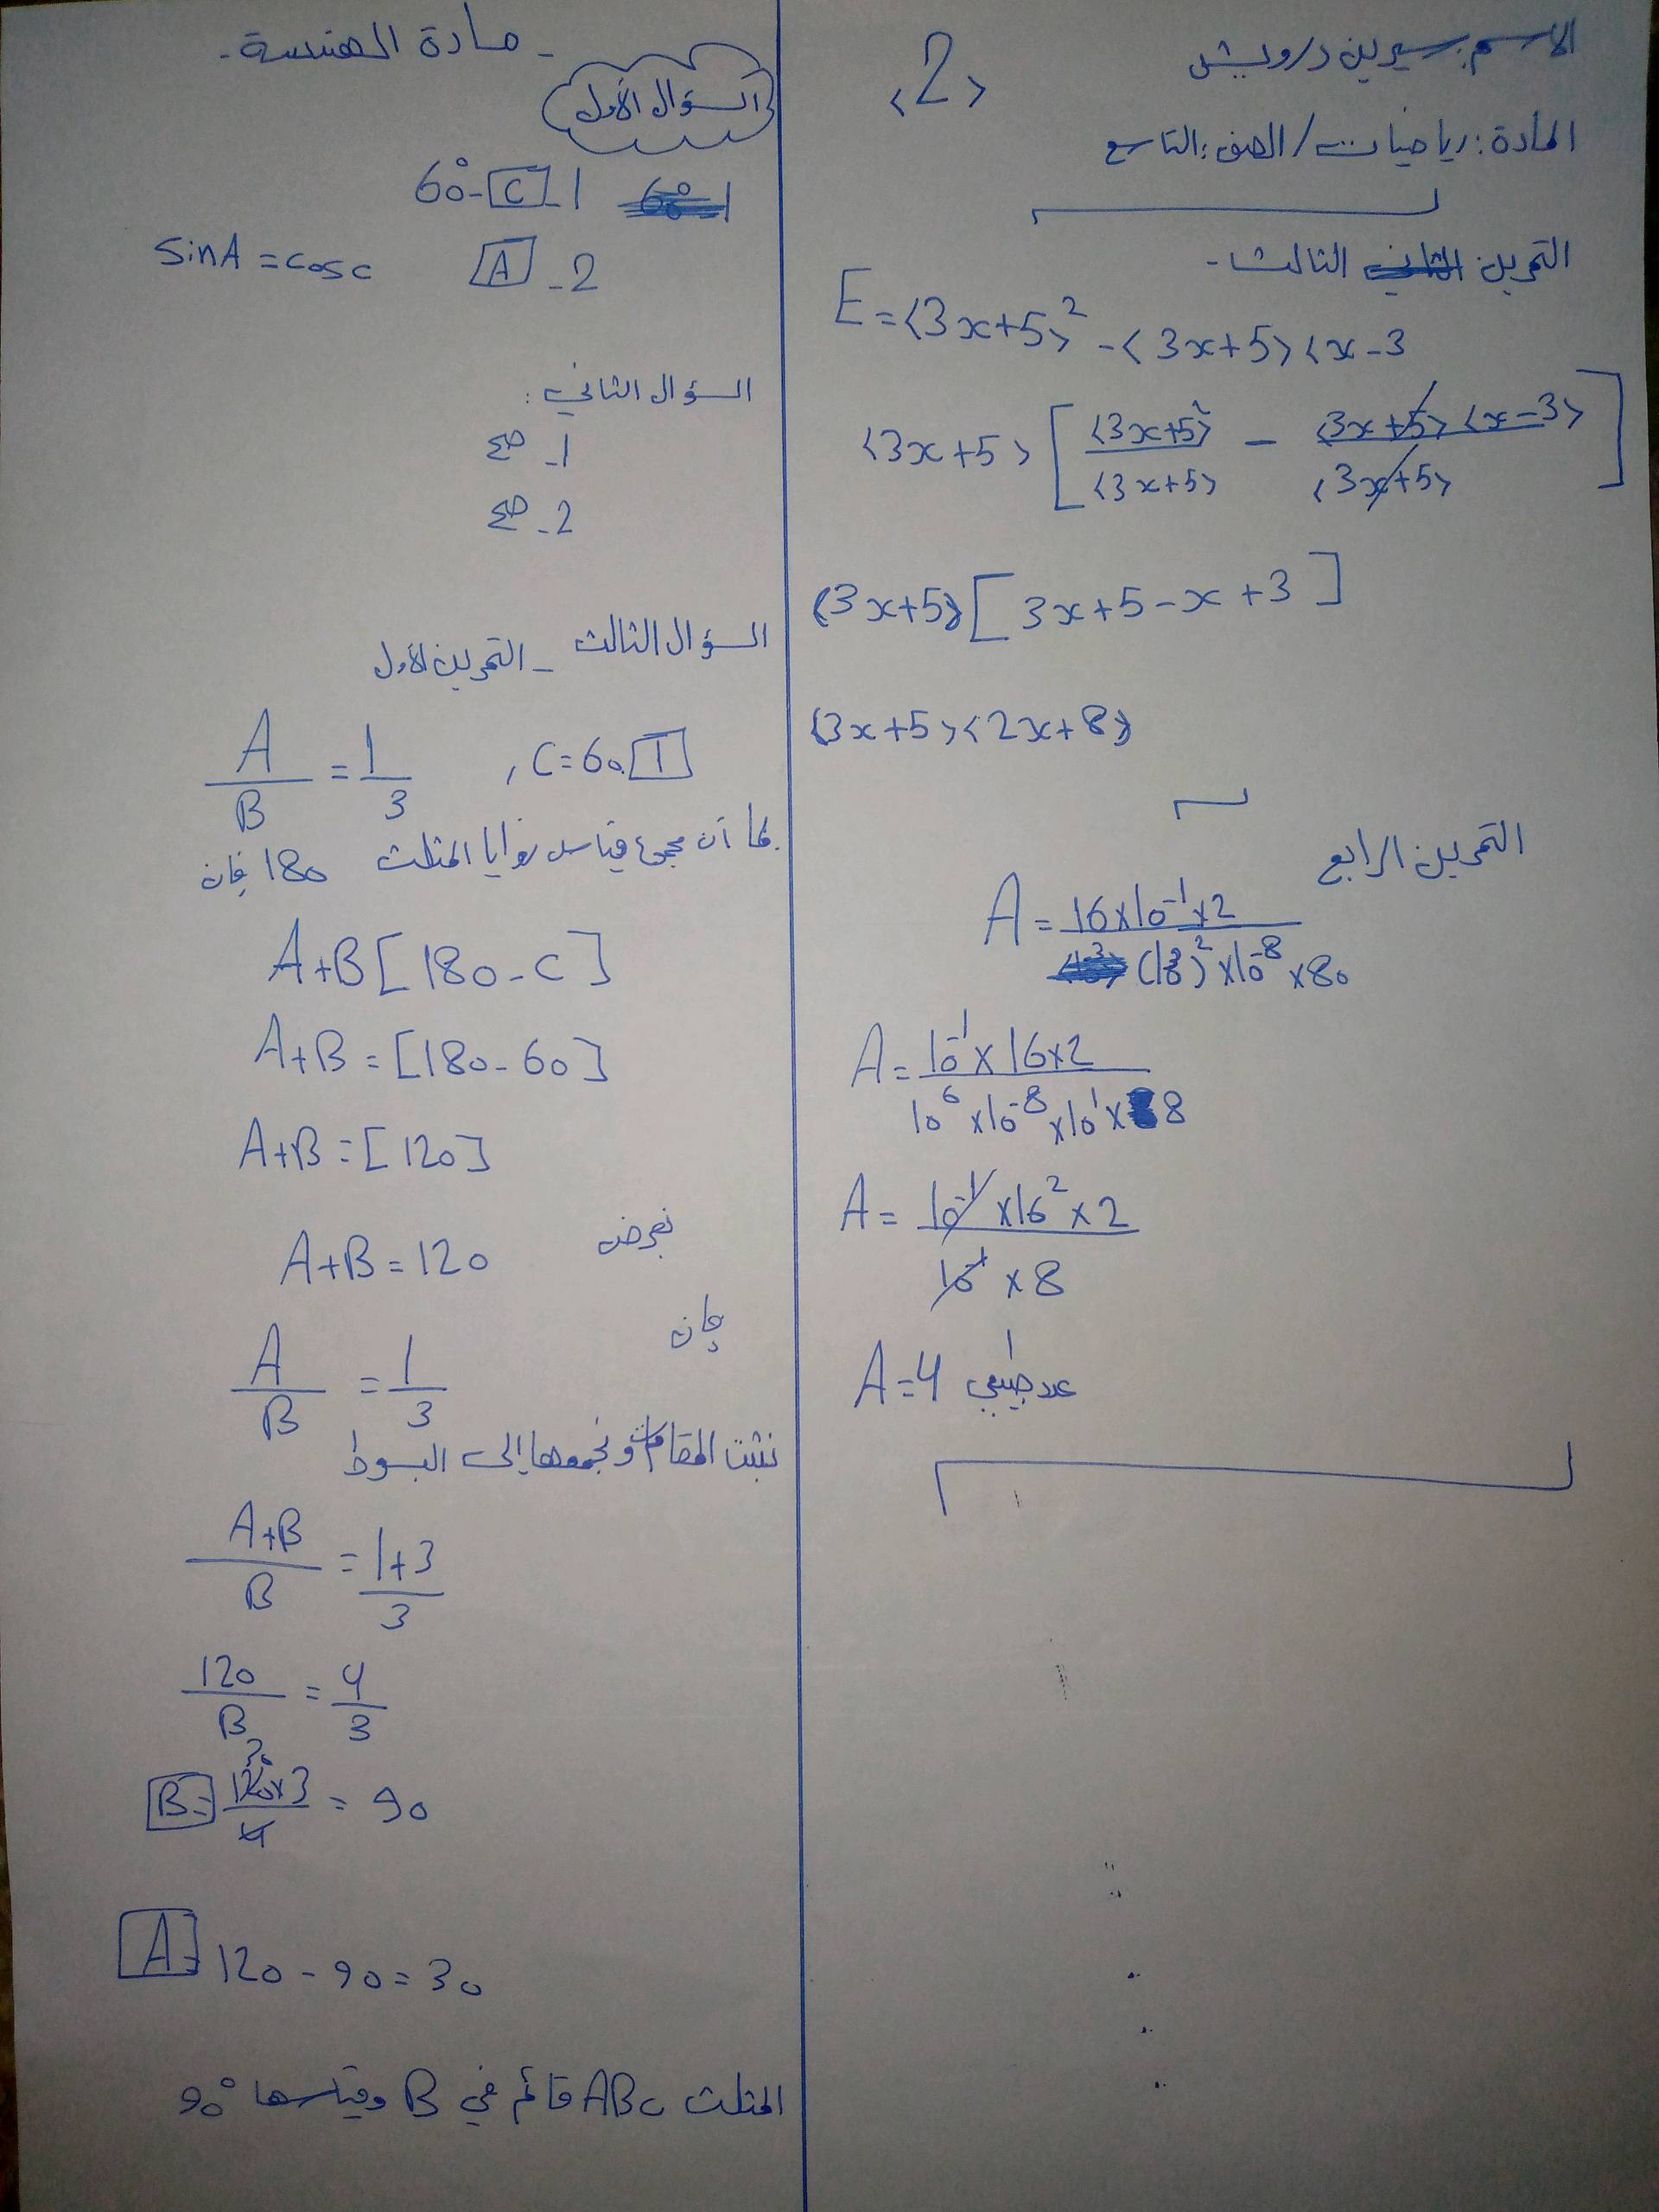 الاسم: سيرين درويش
<2>
المادة: رياضيات / الصف: التاسع
التمرين الثالث -
E = <3x+5>² - <3x+5> <x-3
<3x+5> [ <3x+5>² / <3x+5> - <3x+5> <x-3> / <3x+5> ]
(3x+5) [ 3x+5-x+3 ]
(3x+5> <2x+8)
التمرين الرابع
A = 16x10⁻¹x2 / (10³)² x10⁻⁸ x80
A = 10⁻¹ x 16x2 / 10⁶ x10⁻⁸ x10¹ x 8
A = 10⁻¹ x16² x 2 / 10⁻¹ x 8
A = 4 عدد طبيعي
- مادة الهندسة -
السؤال الأول
1- C - 60°
2- A sinA = cosc
السؤال الثاني :
1- صح
2- صح
السؤال الثالث - التمرين الأول
1 C=60 , A/B = 1/3
بما أن مجموع قياس زوايا المثلث 180 فإن
A+B [ 180 - C ]
A+B = [ 180 - 60 ]
A+B = [ 120 ]
نعوض A+B = 120
فإن
A/B = 1/3
نثبت المقامات ونجمعها إلى البسوط
A+B / B = 1+3 / 3
120 / B = 4 / 3
B = 120x3 / 4 = 90
A = 120 - 90 = 30
المثلث ABC قائم في B وقياسها 90°